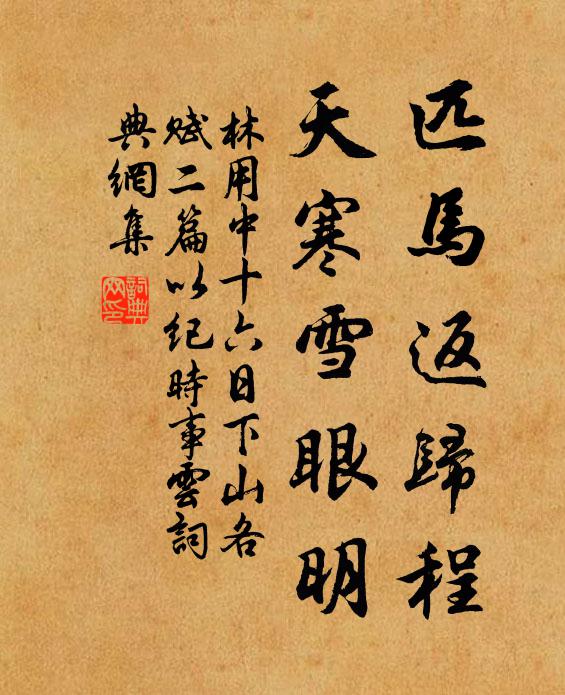 匹馬返歸程
天寒雪眼明
林用中十六日下山各
賦二篇以紀時事雲詞
典網集
詞典
网印